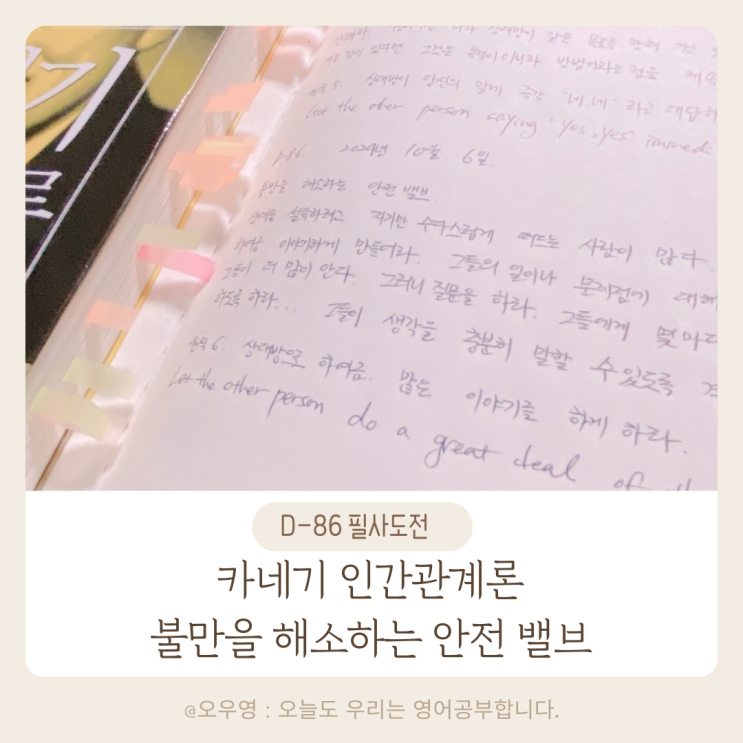 기
론
원칙 5. 상대방이 당신의 말에 즉각 "네, 네" 라고 대답하
Get the other person saying "yes, yes" immedi
p.86. 2024년 10월 6일.
불만을 해소하는 안전 밸브.
상대를 설득하려고 자기만 수다스럽게 떠드는 사람이 많다.
하여금 이야기하게 만들어라. 그들의 일이나 문제점에 대해
그들이 더 많이 안다. 그러니 질문을 하라. 그들에게 몇 마디
하도록 하라... 그들이 생각을 충분히 말할 수 있도록
원칙 6. 상대방으로 하여금 많은 이야기를 하게 하라.
Let the other person do a great deal of
D-86 필사도전
카네기 인간관계론
불만을 해소하는 안전 밸브
@오우영 : 오늘도 우리는 영어공부합니다.